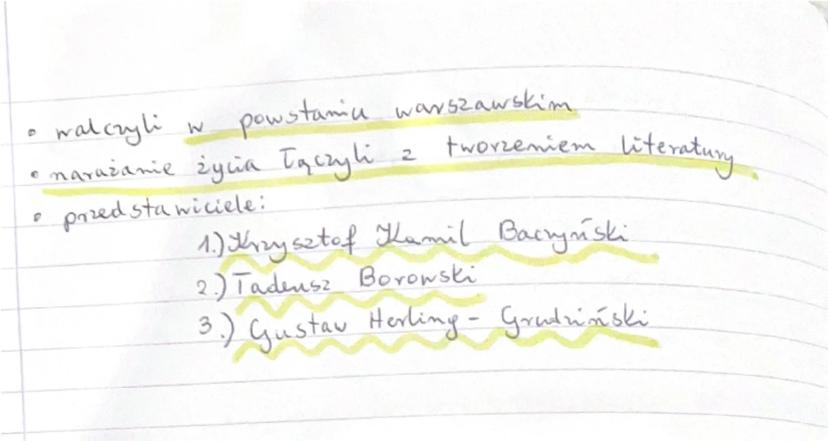 • walczyli w powstaniu warszawskim
• narażanie życia łączyli z tworzeniem literatury
• przedstawiciele:
1.) Krzysztof Kamil Baczyński
2.) Tadeusz Borowski
3.) Gustaw Herling - Grudziński